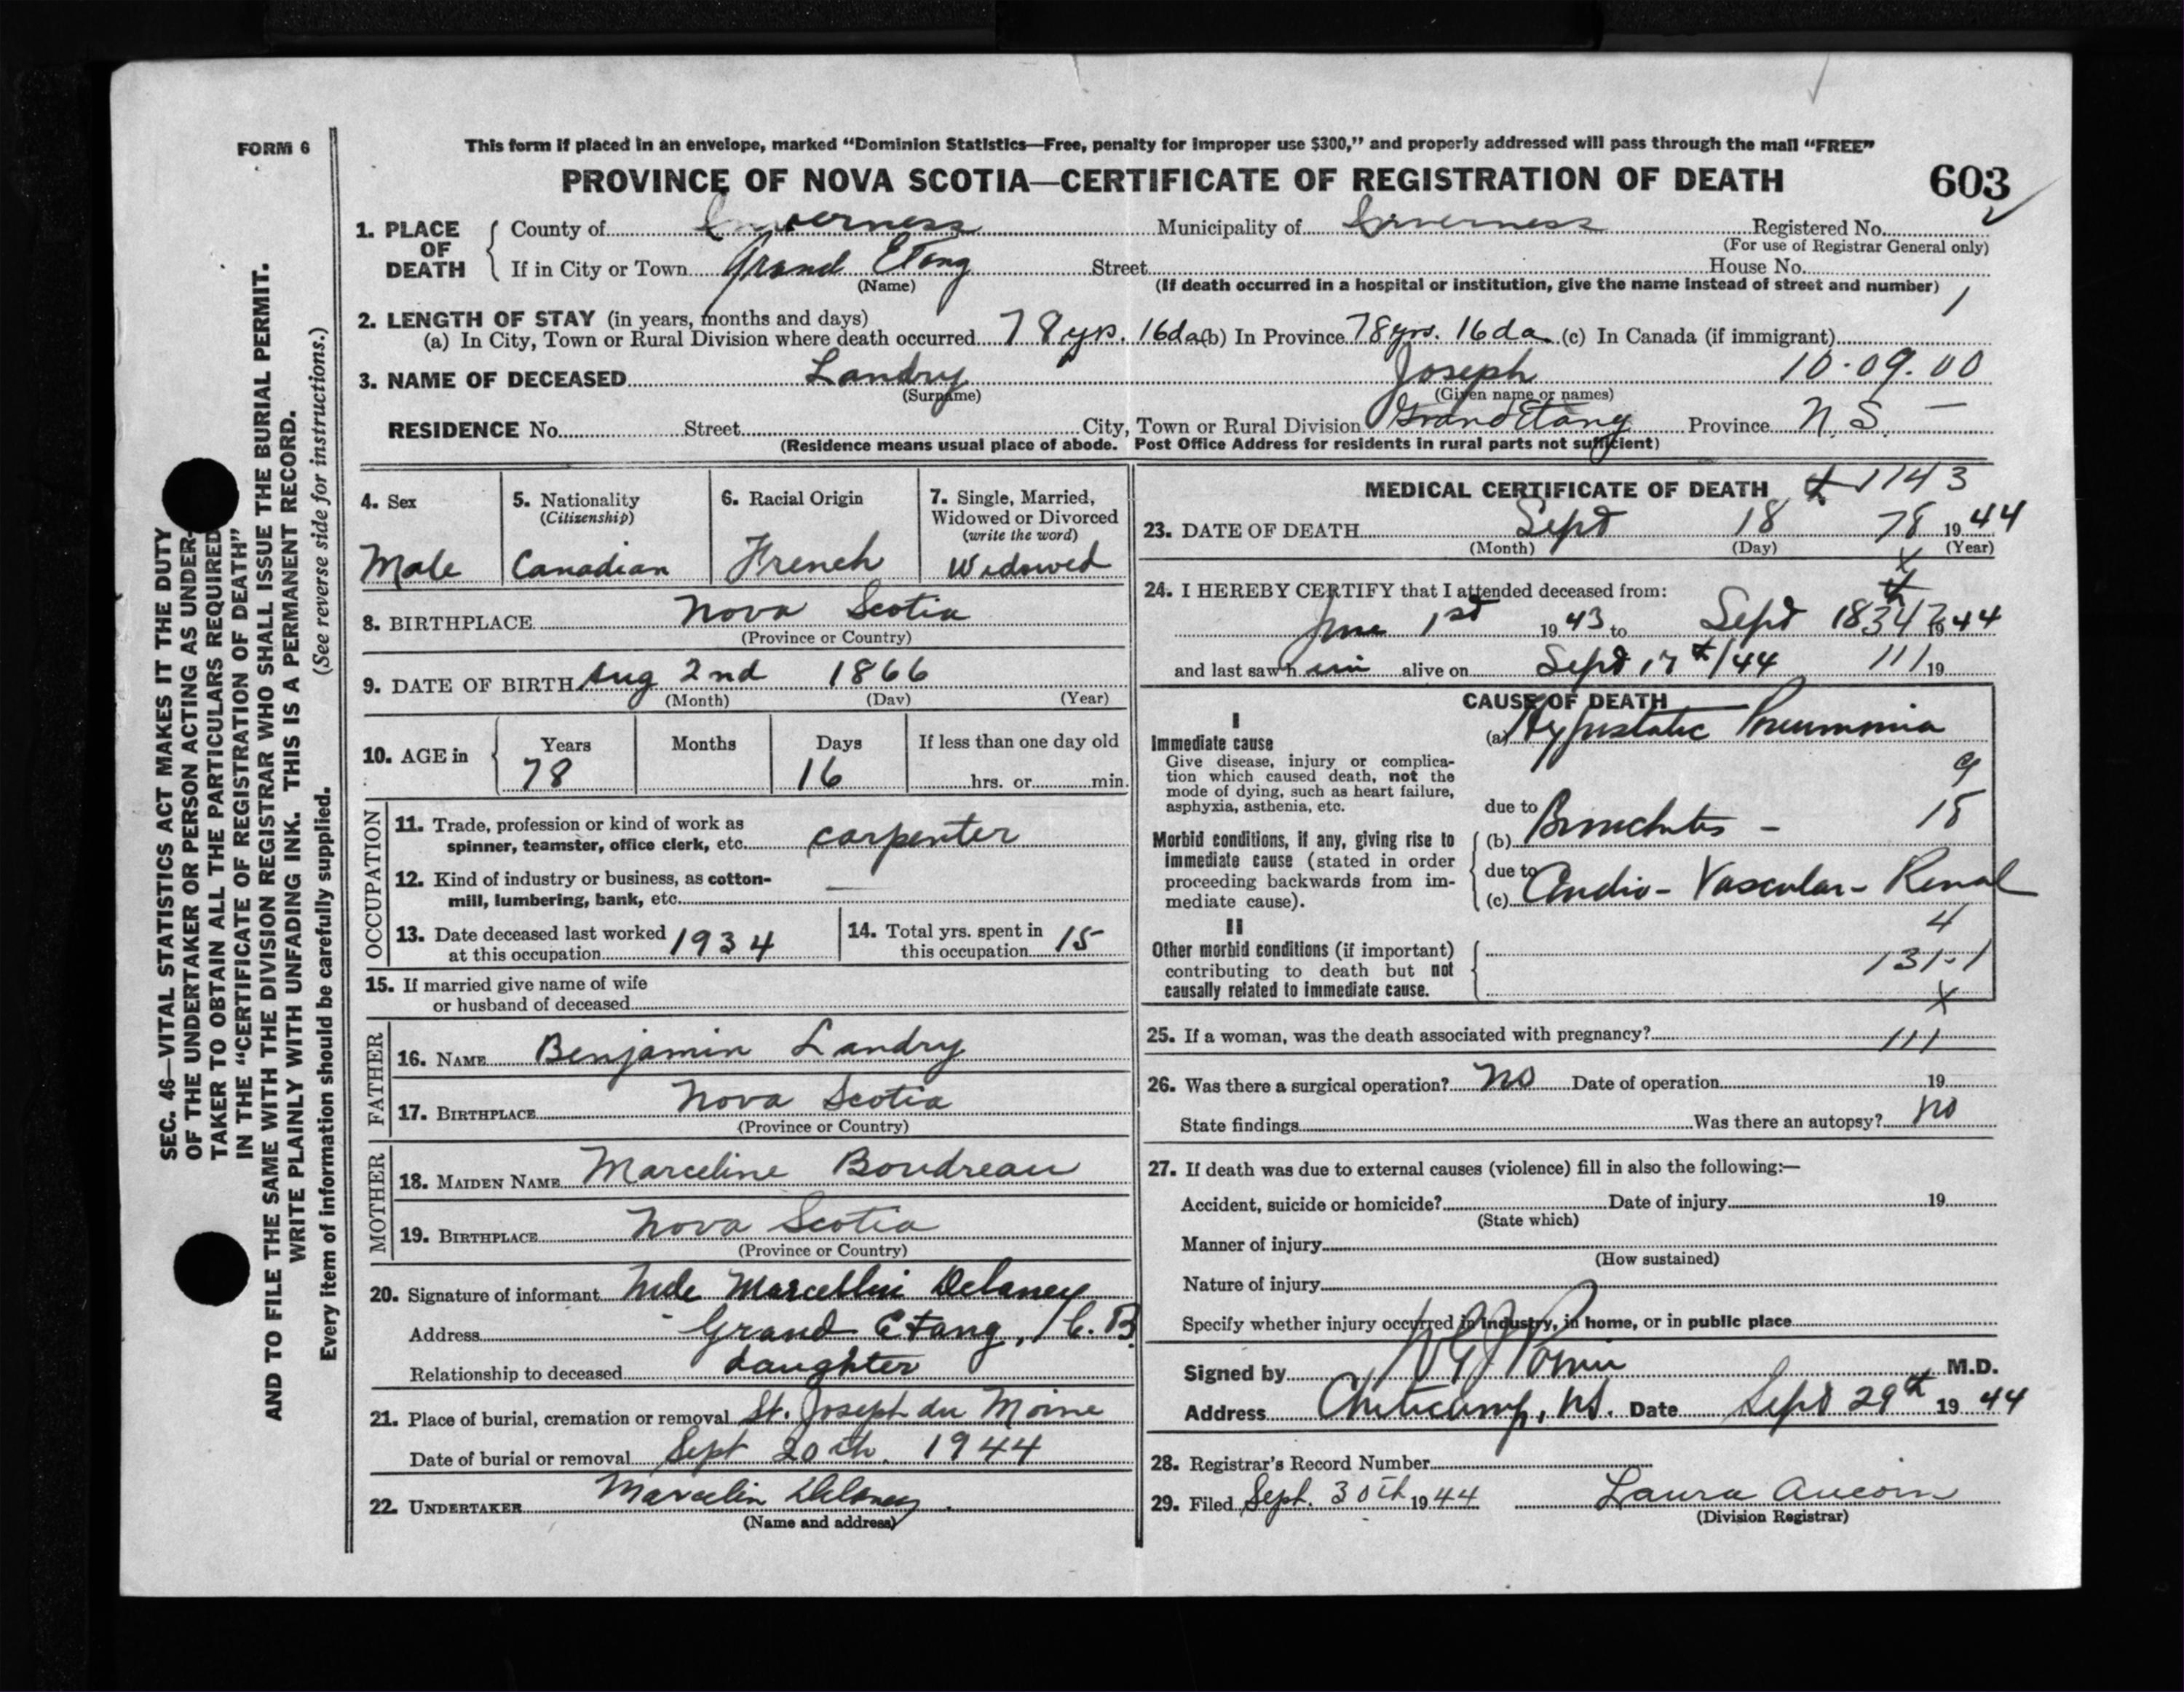 FORM 6
This form if placed in an envelope, marked “Dominion Statistics—Free, penalty for improper use $300,” and properly addressed will pass through the mail “FREE”
PROVINCE OF NOVA SCOTIA—CERTIFICATE OF REGISTRATION OF DEATH
603
1. PLACE OF DEATH
County of Inverness Municipality of Inverness Registered No.
(For use of Registrar General only)
If in City or Town Grand Etang Street House No.
(Name) (If death occurred in a hospital or institution, give the name instead of street and number)
2. LENGTH OF STAY (in years, months and days)
(a) In City, Town or Rural Division where death occurred 78 yrs. 16 da (b) In Province 78 yrs. 16 da (c) In Canada (if immigrant)
3. NAME OF DECEASED Landry Joseph 10-09.00
(Surname) (Given name or names)
RESIDENCE No. Street City, Town or Rural Division Grand Etang Province N.S. —
(Residence means usual place of abode. Post Office Address for residents in rural parts not sufficient)
4. Sex
Male
5. Nationality
(Citizenship)
Canadian
6. Racial Origin
French
7. Single, Married,
Widowed or Divorced
(write the word)
Widowed
8. BIRTHPLACE Nova Scotia
(Province or Country)
9. DATE OF BIRTH Aug 2nd 1866
(Month) (Day) (Year)
10. AGE in
Years Months Days If less than one day old
78 16 hrs. or min.
OCCUPATION
11. Trade, profession or kind of work as
spinner, teamster, office clerk, etc. carpenter
12. Kind of industry or business, as cotton-
mill, lumbering, bank, etc. —
13. Date deceased last worked
at this occupation 1934
14. Total yrs. spent in
this occupation 15
15. If married give name of wife
or husband of deceased
FATHER
16. NAME Benjamin Landry
17. BIRTHPLACE Nova Scotia
(Province or Country)
MOTHER
18. MAIDEN NAME Marceline Boudreau
19. BIRTHPLACE Nova Scotia
(Province or Country)
20. Signature of informant Marcellin Delaney
Address Grand Etang, C.B.
Relationship to deceased daughter
21. Place of burial, cremation or removal St. Joseph du Moine
Date of burial or removal Sept 20th. 1944
22. UNDERTAKER Marcelin Delaney
(Name and address)
MEDICAL CERTIFICATE OF DEATH 1143
23. DATE OF DEATH Sept 18 78 1944
(Month) (Day) (Year)
24. I HEREBY CERTIFY that I attended deceased from:
June 1st 1943 to Sept 18 1944
and last saw him alive on Sept 17th/44 111 19
CAUSE OF DEATH
I
Immediate cause
Give disease, injury or complica-
tion which caused death, not the
mode of dying, such as heart failure,
asphyxia, asthenia, etc.
(a) Hypostatic Pneumonia
9
due to
15
Morbid conditions, if any, giving rise to
immediate cause (stated in order
proceeding backwards from im-
mediate cause).
(b) Bronchitis —
due to
(c) Cardio-Vascular-Renal
4
II
Other morbid conditions (if important)
contributing to death but not
causally related to immediate cause.
131-1
X
25. If a woman, was the death associated with pregnancy? 111
26. Was there a surgical operation? No Date of operation 19
State findings Was there an autopsy? No
27. If death was due to external causes (violence) fill in also the following:—
Accident, suicide or homicide? Date of injury 19
(State which)
Manner of injury
(How sustained)
Nature of injury
Specify whether injury occurred in industry, in home, or in public place
Signed by M.D.
Address Cheticamp, NS. Date Sept 29th 1944
28. Registrar's Record Number
29. Filed Sept. 30th 1944 Laura Aucoin
(Division Registrar)
SEC. 46—VITAL STATISTICS ACT MAKES IT THE DUTY
OF THE UNDERTAKER OR PERSON ACTING AS UNDER-
TAKER TO OBTAIN ALL THE PARTICULARS REQUIRED
IN THE “CERTIFICATE OF REGISTRATION OF DEATH”
AND TO FILE THE SAME WITH THE DIVISION REGISTRAR WHO SHALL ISSUE THE BURIAL PERMIT.
WRITE PLAINLY WITH UNFADING INK. THIS IS A PERMANENT RECORD.
Every item of information should be carefully supplied. (See reverse side for instructions.)